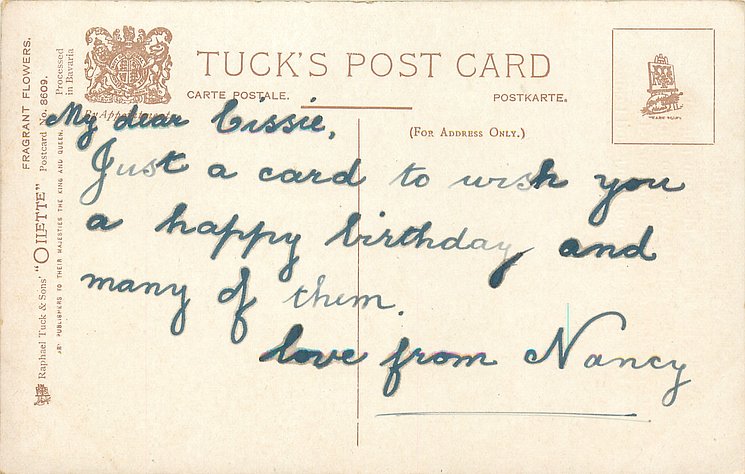 TUCK'S POST CARD
CARTE POSTALE.
POSTKARTE.
(FOR ADDRESS ONLY.)
By Appointment
My dear Cissie,
Just a card to wish you
a happy birthday and
many of them.
love from Nancy
FRAGRANT FLOWERS.
Raphael Tuck & Sons' "OILETTE" Postcard No. 8609.
ART PUBLISHERS TO THEIR MAJESTIES THE KING AND QUEEN.
Processed
in Bavaria